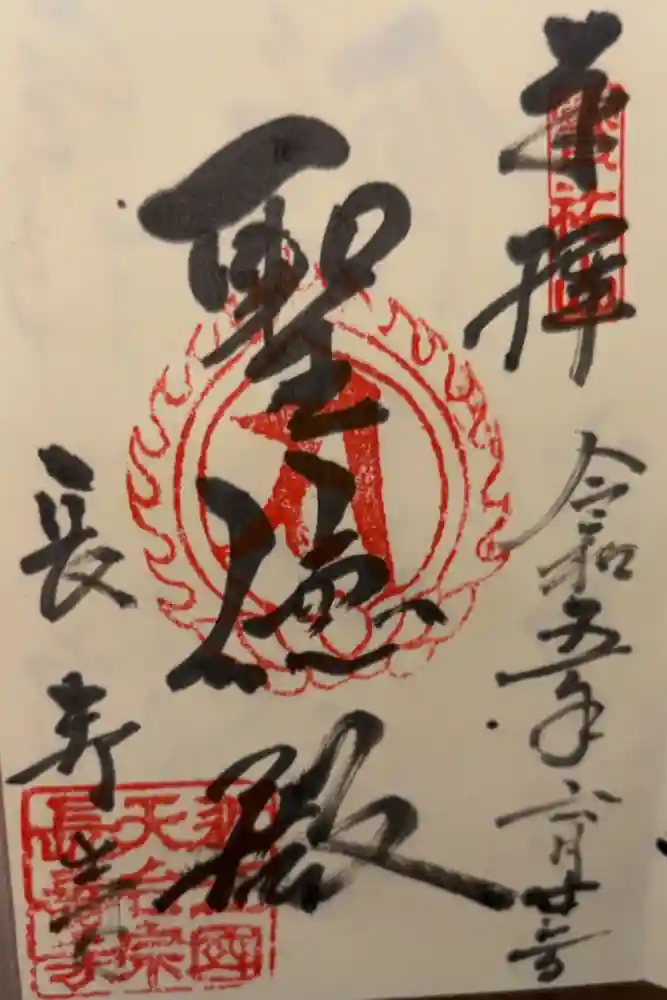 奉拝
令和五年六月廿
聖徳殿
長寿寺
天台宗
長壽寺